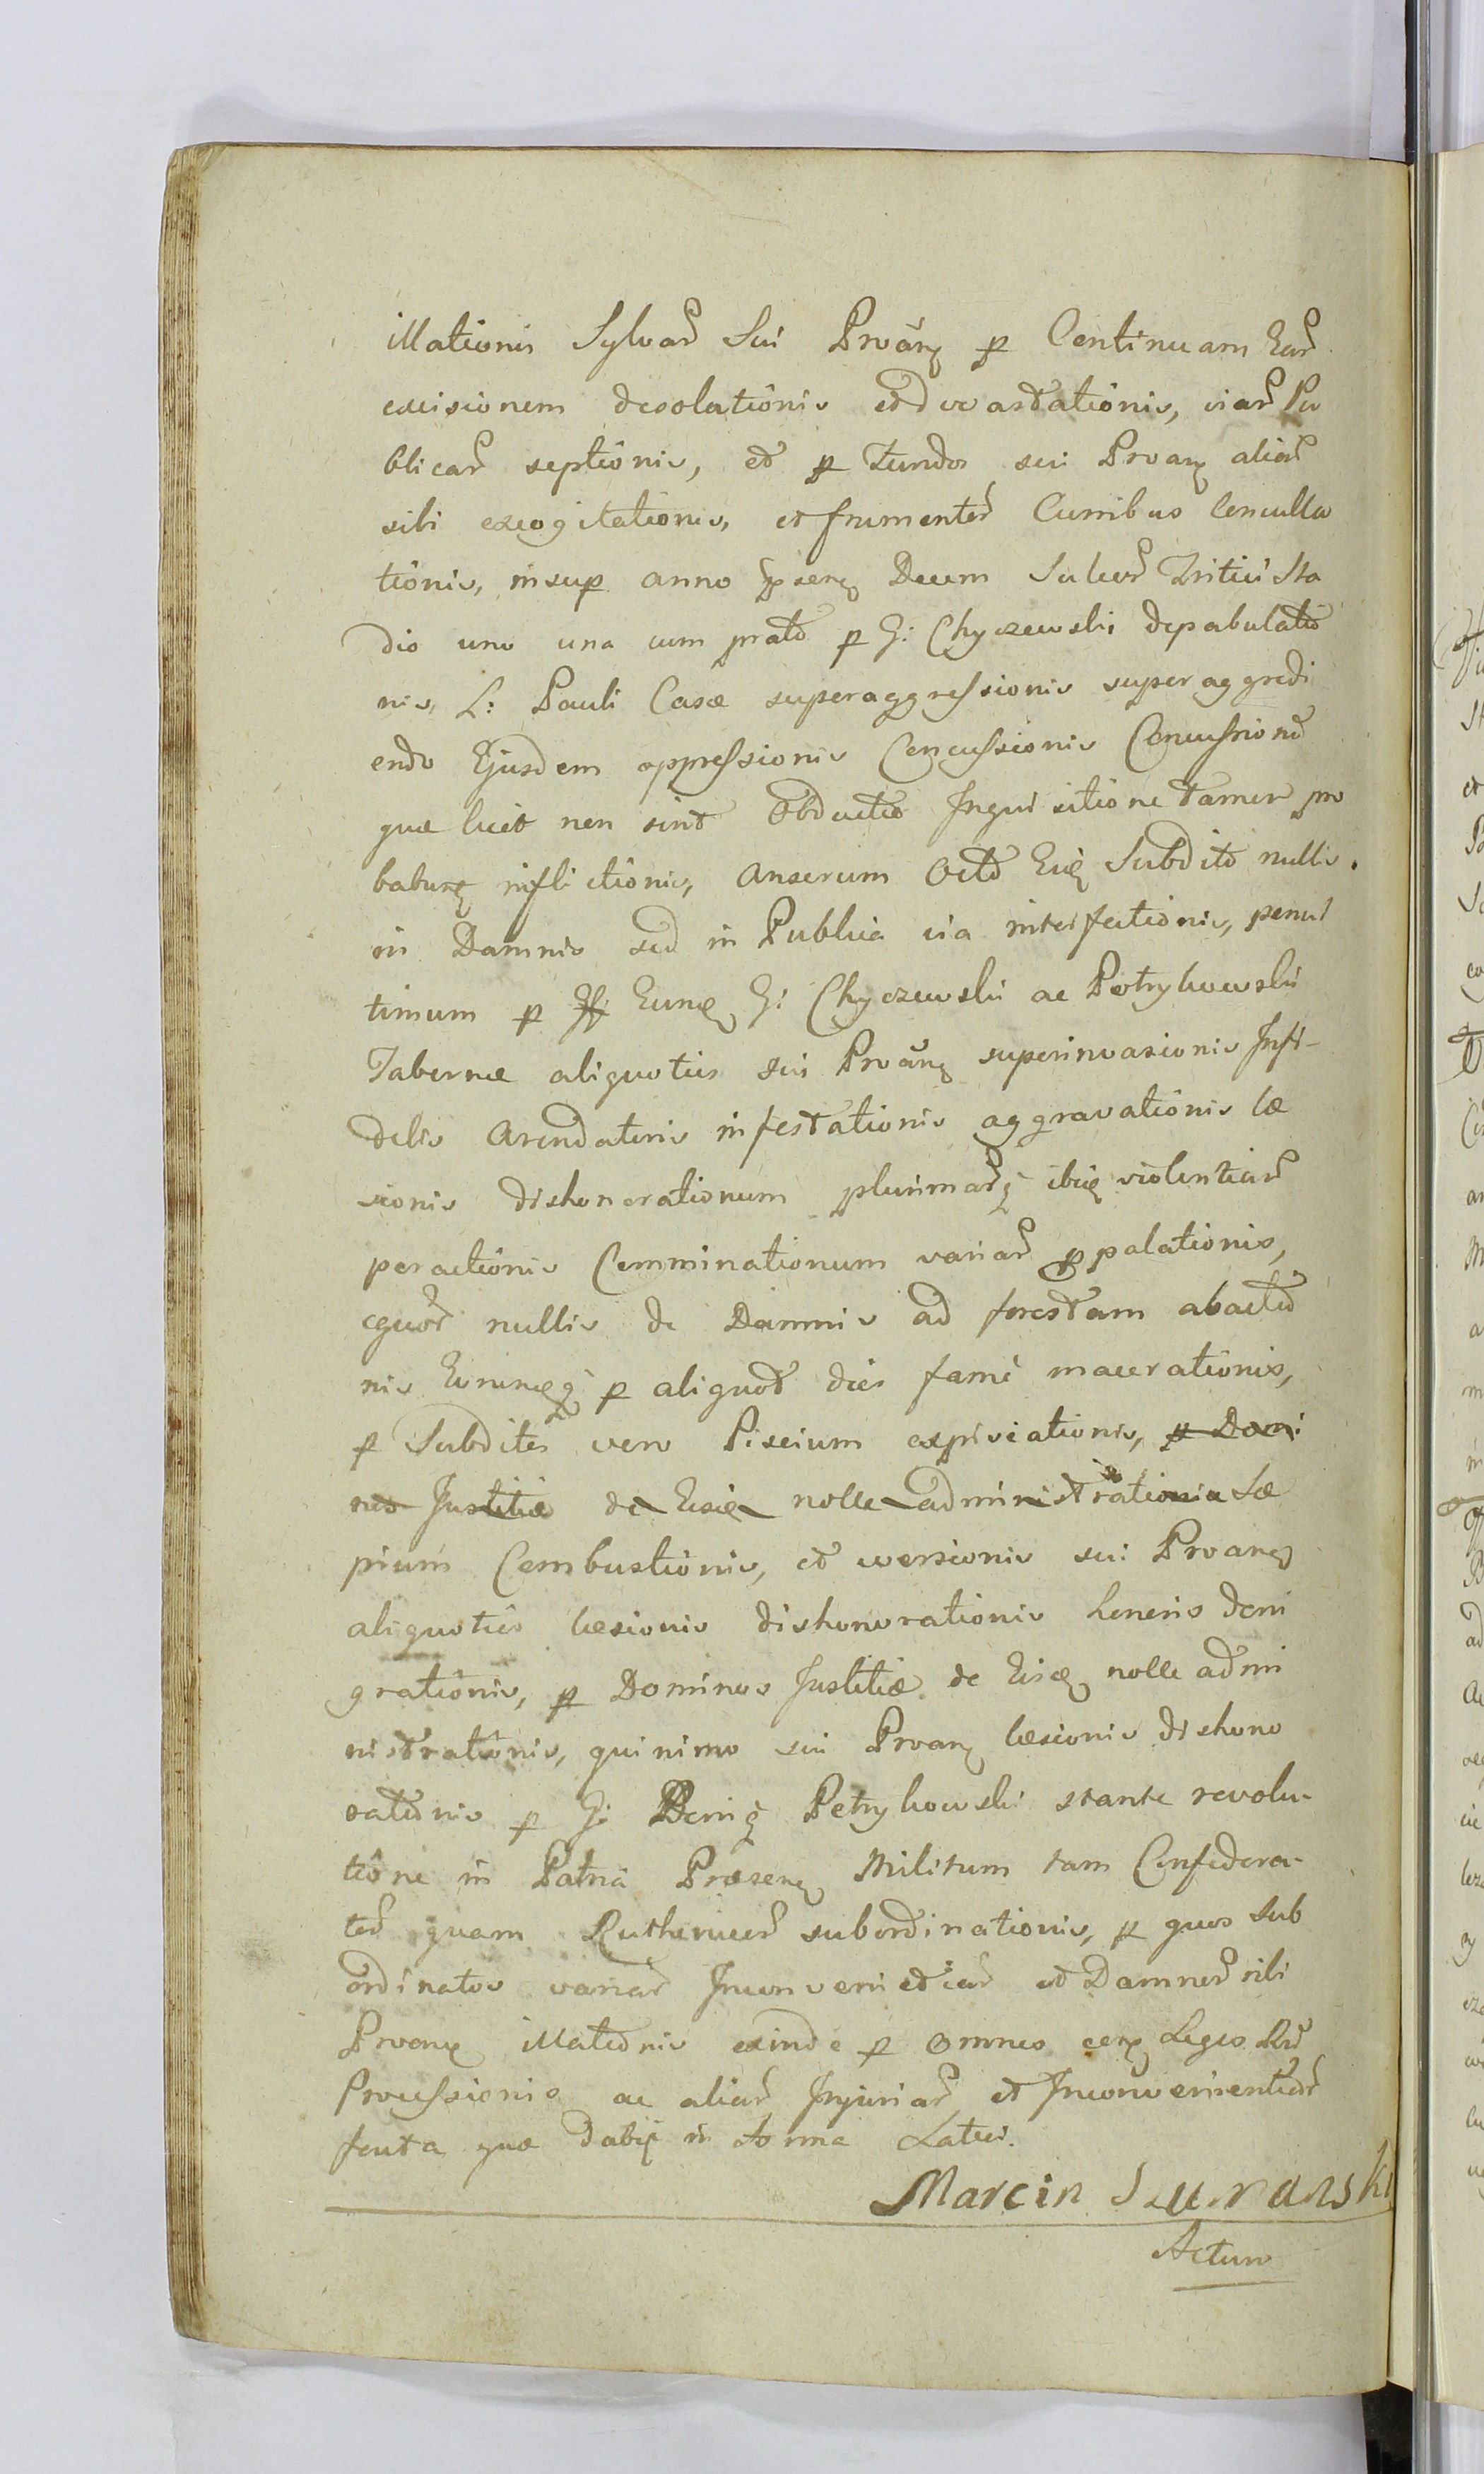 illationis Sylvar Sui Proañz p Continuam Ear
excisionem desolationis et devastationis, viar Pu
blicar septionis, et p fundos sui Proanz aliar
sibi excogitationis, et frumentor Curribus Conculca
tionis, insup anno psenz Decem Sulcor Tritici Sta
dio uno una cum prato p G: Chyczewski depabulatio
nis, L: Pauli Casæ superaggressionis superaggredi
endo Ejusdem oppressionis Concussionis Concussiones
quæ licet non sint Obductio Inquisitione tamen pro
babunt inflictionis, Anserum Octo Ejus Subdito nullis
in Damnis sed in Publica via interfectionis, penul
timum p Eundem G: Chyczewski ac Petrykowski
Tabernæ aliquoties sui Proañz superinvasionis Infi-
delis Arendatoris infestationis aggravationis læ
sionis dishonorationum plurimarq ibiq violentiar
peractionis Comminationum variar ppalationis,
equor nullis de Damnis ad forestam abactio
nis Eorumq p aliquot dies famè macerationis,
p Subditos vero Piscium expiscationis, p Domi
nos Justitiæ de Eisq nolle administrationis Sæ
pium Combustionis, et versionis sui Proanz
aliquoties læsionis dishonorationis honoris deni
grationis, p Dominos Justitiæ de Eisq nolle admi
nistrationis, quinimo sui Proanz læsionis dishono
rationis p G: Petrykowski stante revolu-
tione in Patria Præsenz Militum tam Confedera-
tor quam Ruthenicor subordinationis, p quos Sub
ordinatos variar Inconvenietiar et Damnor sibi
Proanz illationis exinde p omnes Leges
Processionis ac aliar Injuriar et Inconvenientiar
feuta quæ dabit in Latius.
Marcin Szuranski
Actum